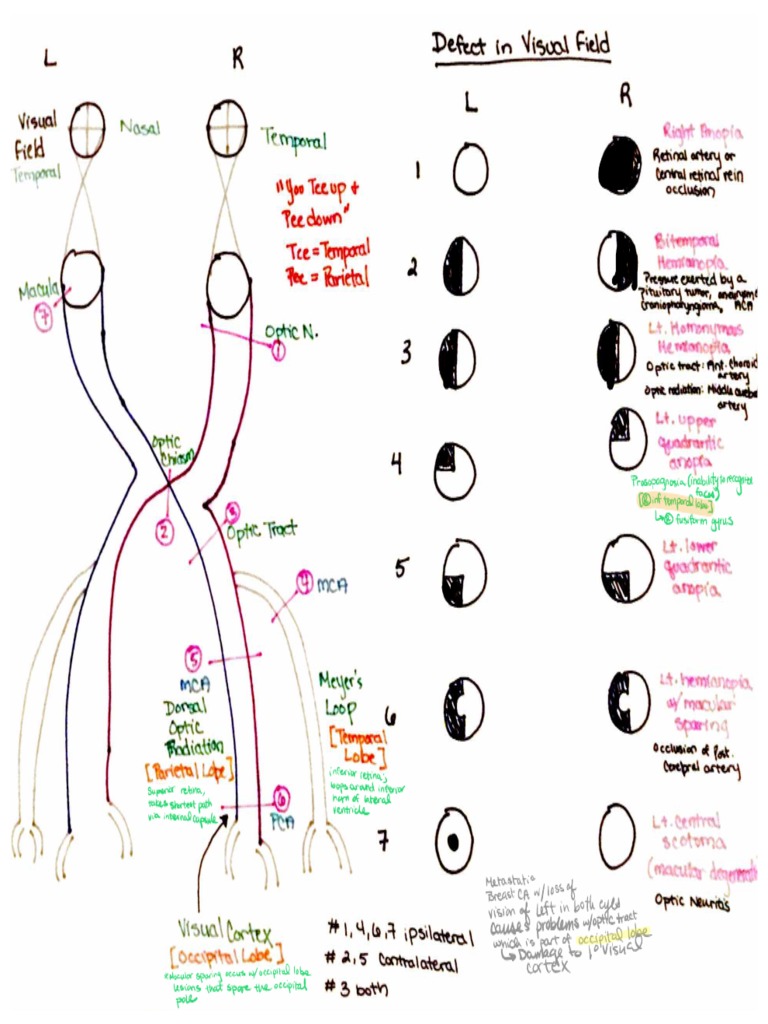 Defect in Visual Field
L
R
Visual
Field
Temporal
Nasal
Temporal
"You Tee up +
Pee down"
Tee = Temporal
Pee = Parietal
Macula
7
Optic N.
1
Optic
Chiasm
2
3
Optic Tract
4
MCA
5
MCA
Dorsal
Optic
Radiation
[Parietal Lobe]
Superior retina,
takes shortest path
via internal capsule
Meyer's
Loop
[Temporal
Lobe]
inferior retina;
loops around inferior
horn of lateral
ventricle
6
PCA
Visual Cortex
[Occipital Lobe]
macular sparing occurs w/ occipital lobe
lesions that spare the occipital
pole
# 1, 4, 6, 7 ipsilateral
# 2, 5 contralateral
# 3 both
L
R
1
Right Anopia
Retinal artery or
central retinal vein
occlusion
2
Bitemporal
Hemianopia
Pressure exerted by a
pituitary tumor,
craniopharyngioma, ACA
3
Lt. Homonymous
Hemianopia
Optic tract: Ant. Choroid
artery
Optic radiation: Middle
artery
4
Lt. upper
quadrantic
anopia
Prosopagnosia (inability to
faces)
[R inf temporal lobe]
↳ R fusiform gyrus
5
Lt. lower
quadrantic
anopia
6
Lt. hemianopia
w/ macular
sparing
Occlusion of Post.
Cerebral artery
7
Lt. Central
scotoma
(macular
Optic Neuritis
Metastatic
Breast CA w/ loss of
vision of left in both eyes
causes problems w/ optic tract
which is part of occipital lobe
↳ Damage to 1° visual
cortex